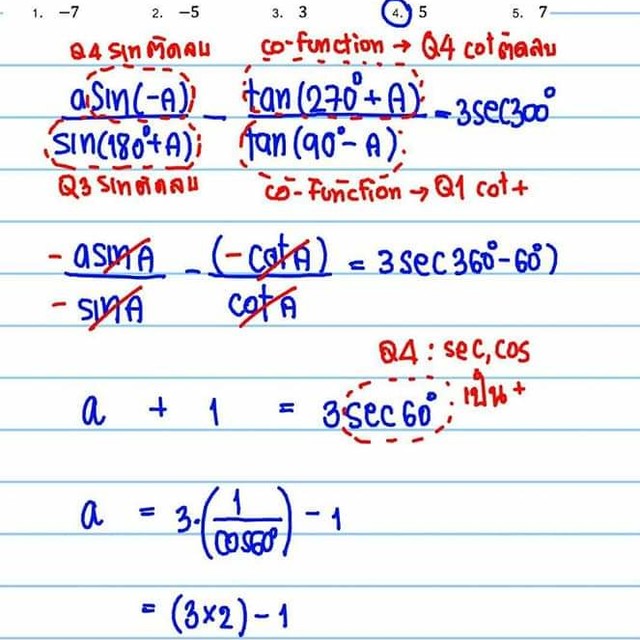 1. -7 2. -5 3. 3 4. 5 5. 7
Q4 sin ติดลบ co-function → Q4 cot ติดลบ
asin(-A)/sin(180°+A) - tan(270°+A)/tan(90°-A) = 3sec300°
Q3 sin ติดลบ co-function → Q1 cot +
-asinA/-sinA - (-cotA)/cotA = 3sec360°-60°)
Q4 : sec, cos
เป็น +
a + 1 = 3sec60°
a = 3·(1/cos60°) - 1
= (3×2) - 1